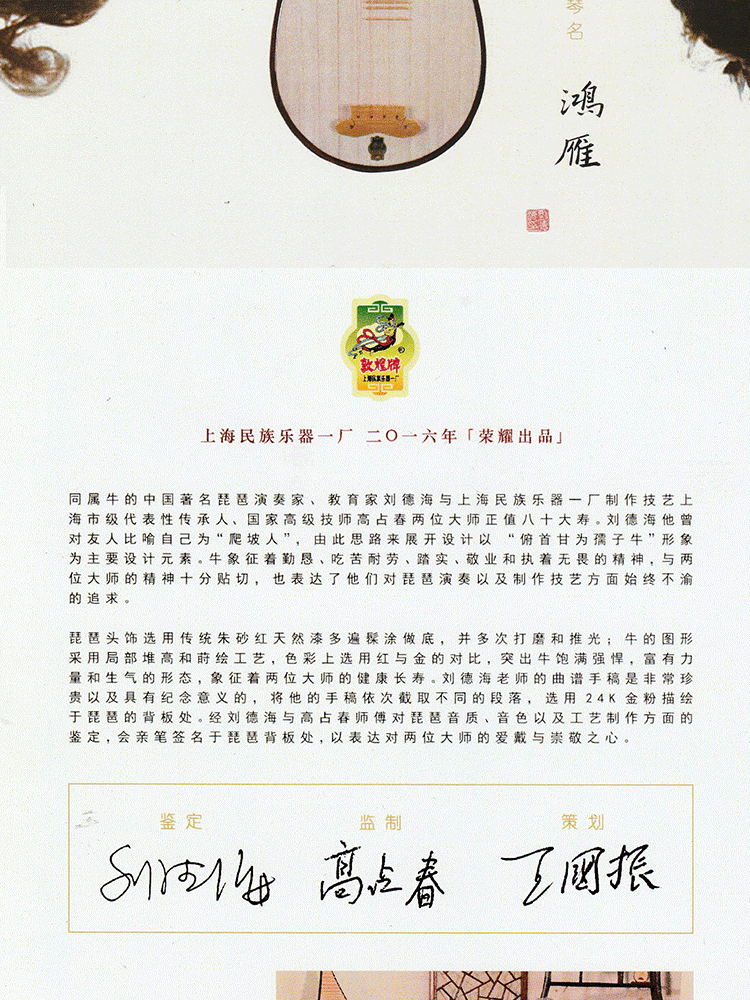 琴名
鸿雁
敦煌牌
上海民族乐器一厂
上海民族乐器一厂 二〇一六年「荣耀出品」
同属牛的中国著名琵琶演奏家、教育家刘德海与上海民族乐器一厂制作技艺上
海市级代表性传承人、国家高级技师高占春两位大师正值八十大寿。刘德海他曾
对友人比喻自己为“爬坡人”，由此思路来展开设计以 “俯首甘为孺子牛”形象
为主要设计元素。牛象征着勤恳、吃苦耐劳、踏实、敬业和执着无畏的精神，与两
位大师的精神十分贴切，也表达了他们对琵琶演奏以及制作技艺方面始终不渝
的追求。
琵琶头饰选用传统朱砂红天然漆多遍髹涂做底，并多次打磨和推光；牛的图形
采用局部堆高和莳绘工艺，色彩上选用红与金的对比，突出牛饱满强悍，富有力
量和生气的形态，象征着两位大师的健康长寿。刘德海老师的曲谱手稿是非常珍
贵以及具有纪念意义的，将他的手稿依次截取不同的段落，选用24K金粉描绘
于琵琶的背板处。经刘德海与高占春师傅对琵琶音质、音色以及工艺制作方面的
鉴定，会亲笔签名于琵琶背板处，以表达对两位大师的爱戴与崇敬之心。
鉴定 监制 策划
刘德海 高占春 王國振